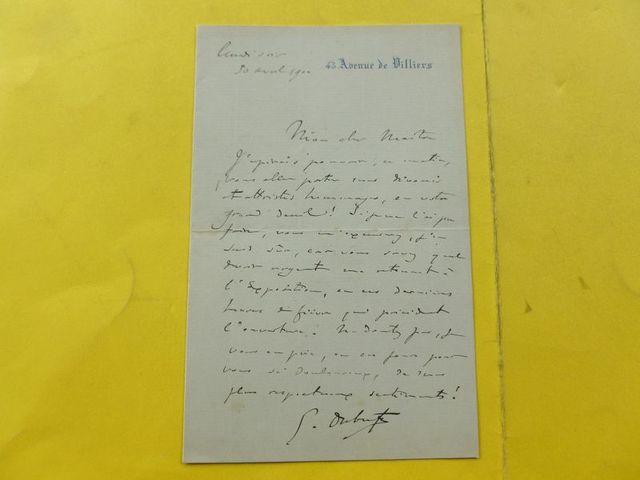 Lundi soir
30 avril 1900
43 Avenue de Villiers
Mon cher Maître
J'espérais pouvoir, ce matin,
vous aller porter mes dévoués
et attristés hommages, en votre
grand deuil! Si je ne l'ai pu
faire, vous m'excuserez, j'en
suis sûr, car vous savez quel
devoir urgent me retenait à
l'Exposition, en ces dernières
heures de fièvre qui précèdent
l'ouverture. Ne doutez pas, je
vous en prie, en ce jour pour
vous si douloureux, de mes
plus respectueux sentiments!
G. Dubufe